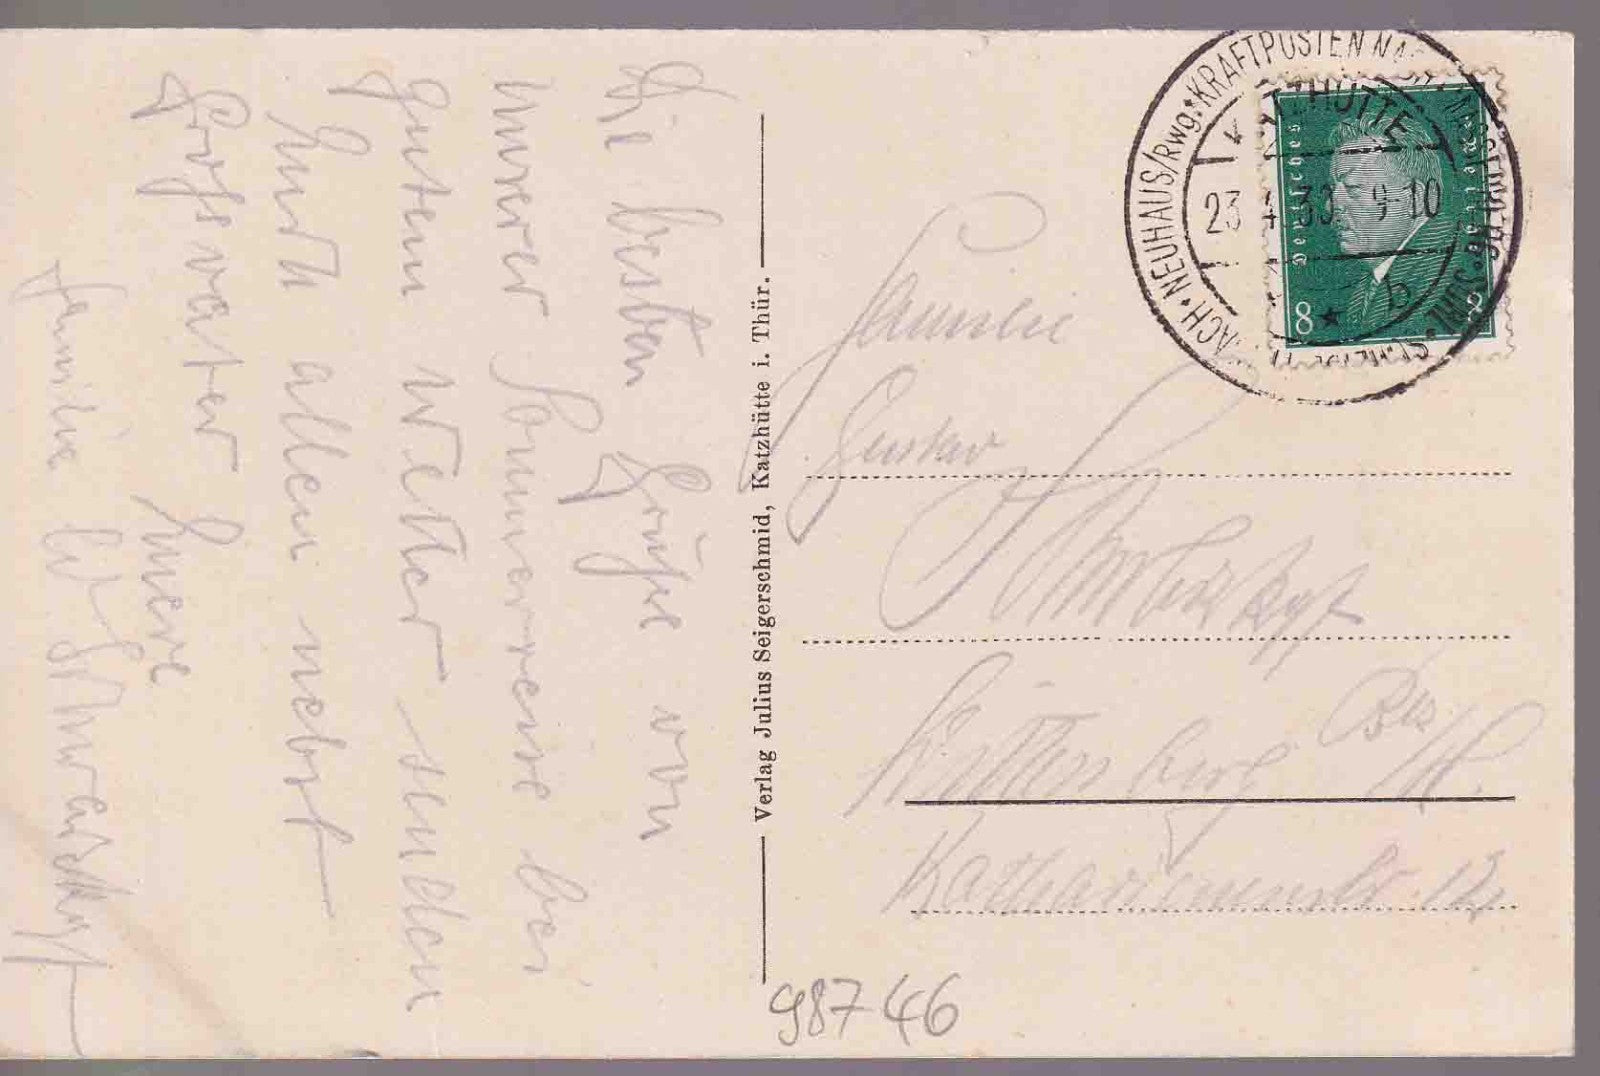 Die besten Grüße von
unserer Sommerreise bei
gutem Wetter senden
Euch allen nebst
Grossvater Euere
Familie
Verlag Julius Seigerschmid, Katzhütte i. Thür.
NEUHAUS/Rwg. KRAFTPOSTEN NACH
HÜTTE
23 4 30 9-10
b
Deutsches Reich
8 8
Familie
Gustav
Wittenberg Bez. H.
Katharinenstr. 12
98746